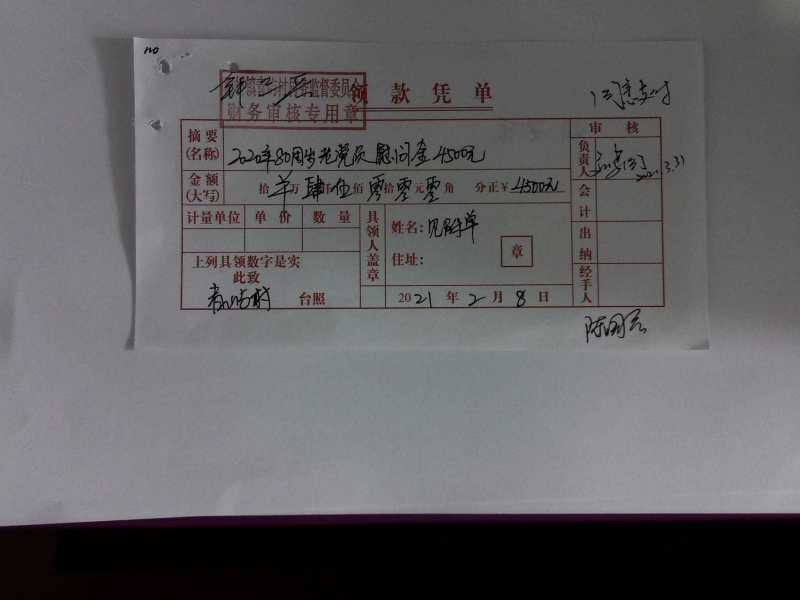 110
村务监督委员会
财务审核专用章
领款凭单
同意支付
摘要
(名称)
2020年80周岁老党员慰问金4500元
审核
负责人
2021.3.31
金额
(大写)
拾 羊 万 肆 仟 伍 佰 零 拾 零 元 零 角 分正¥4500元
会计
计量单位 单价 数量
具领人盖章
姓名:见附单
住址:
章
出纳
上列具领数字是实
此致
村 台照
2021年2月8日
经手人
陈国